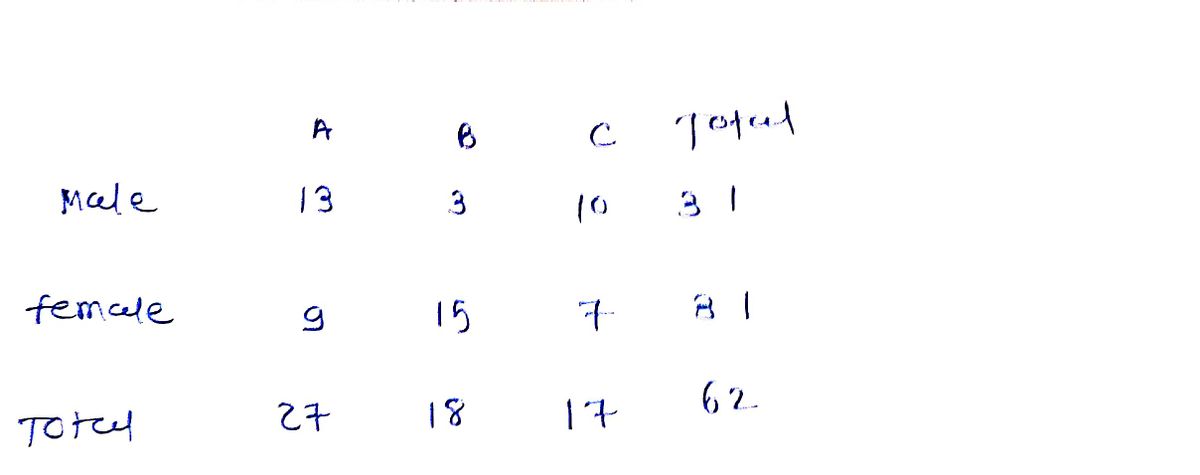 A B C Total
Male 13 3 10 31
female 9 15 7 31
Total 27 18 17 62